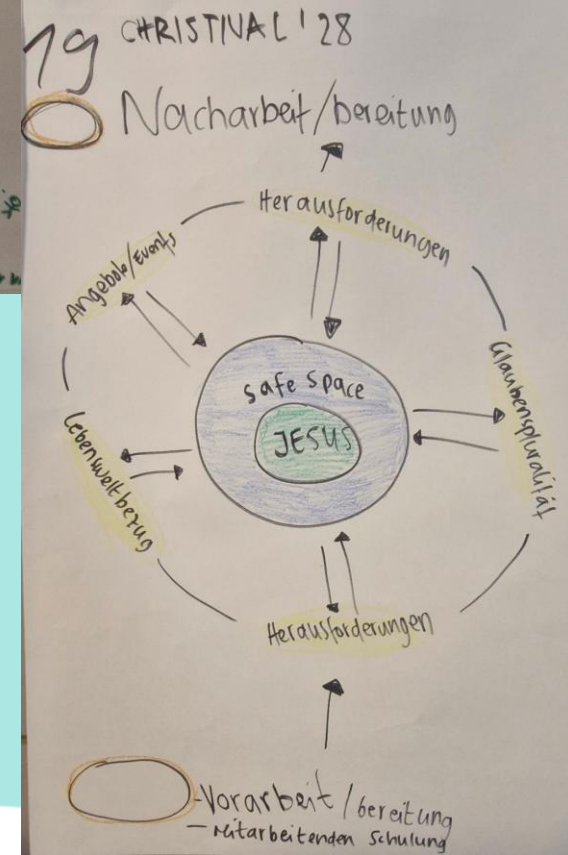 19 CHRISTIVAL '28
Nacharbeit/bereitung
Herausforderungen
Angebote/Events
Glaubenspluralität
safe space
JESUS
Lebensweltbezug
Herausforderungen
-Vorarbeit/bereitung
- Mitarbeitenden Schulung